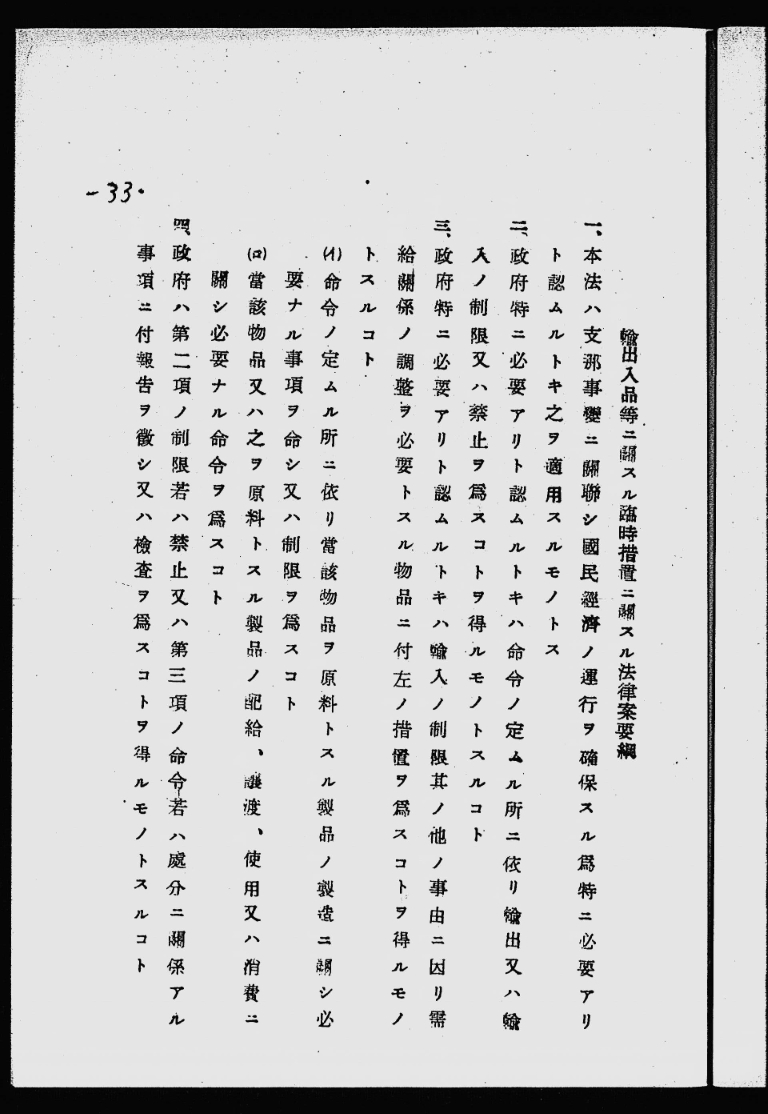 -33.
輸出入品等ニ關スル臨時措置ニ關スル法律案要綱
一、本法ハ支那事變ニ關聯シ國民經濟ノ運行ヲ確保スル爲特ニ必要アリ
ト認ムルトキ之ヲ適用スルモノトス
二、政府特ニ必要アリト認ムルトキハ命令ノ定ムル所ニ依リ輸出又ハ輸
入ノ制限又ハ禁止ヲ爲スコトヲ得ルモノトスルコト
三、政府特ニ必要アリト認ムルトキハ輸入ノ制限其ノ他ノ事由ニ因リ需
給關係ノ調整ヲ必要トスル物品ニ付左ノ措置ヲ爲スコトヲ得ルモノ
トスルコト
(イ)命令ノ定ムル所ニ依リ當該物品ヲ原料トスル製品ノ製造ニ關シ必
要ナル事項ヲ命シ又ハ制限ヲ爲スコト
(ロ)當該物品又ハ之ヲ原料トスル製品ノ配給、讓渡、使用又ハ消費ニ
關シ必要ナル命令ヲ爲スコト
四、政府ハ第二項ノ制限若ハ禁止又ハ第三項ノ命令若ハ處分ニ關係アル
事項ニ付報告ヲ徵シ又ハ檢査ヲ爲スコトヲ得ルモノトスルコト